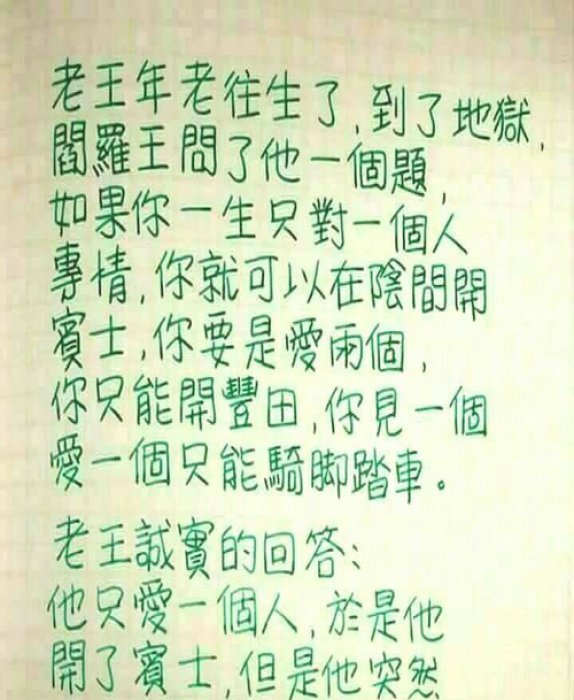 老王年老往生了,到了地獄,
閻羅王問了他一個題,
如果你一生只對一個人
專情,你就可以在陰間開
賓士,你要是愛兩個,
你只能開豐田,你見一個
愛一個只能騎脚踏車。
老王誠實的回答:
他只愛一個人,於是他
開了賓士,但是他突然